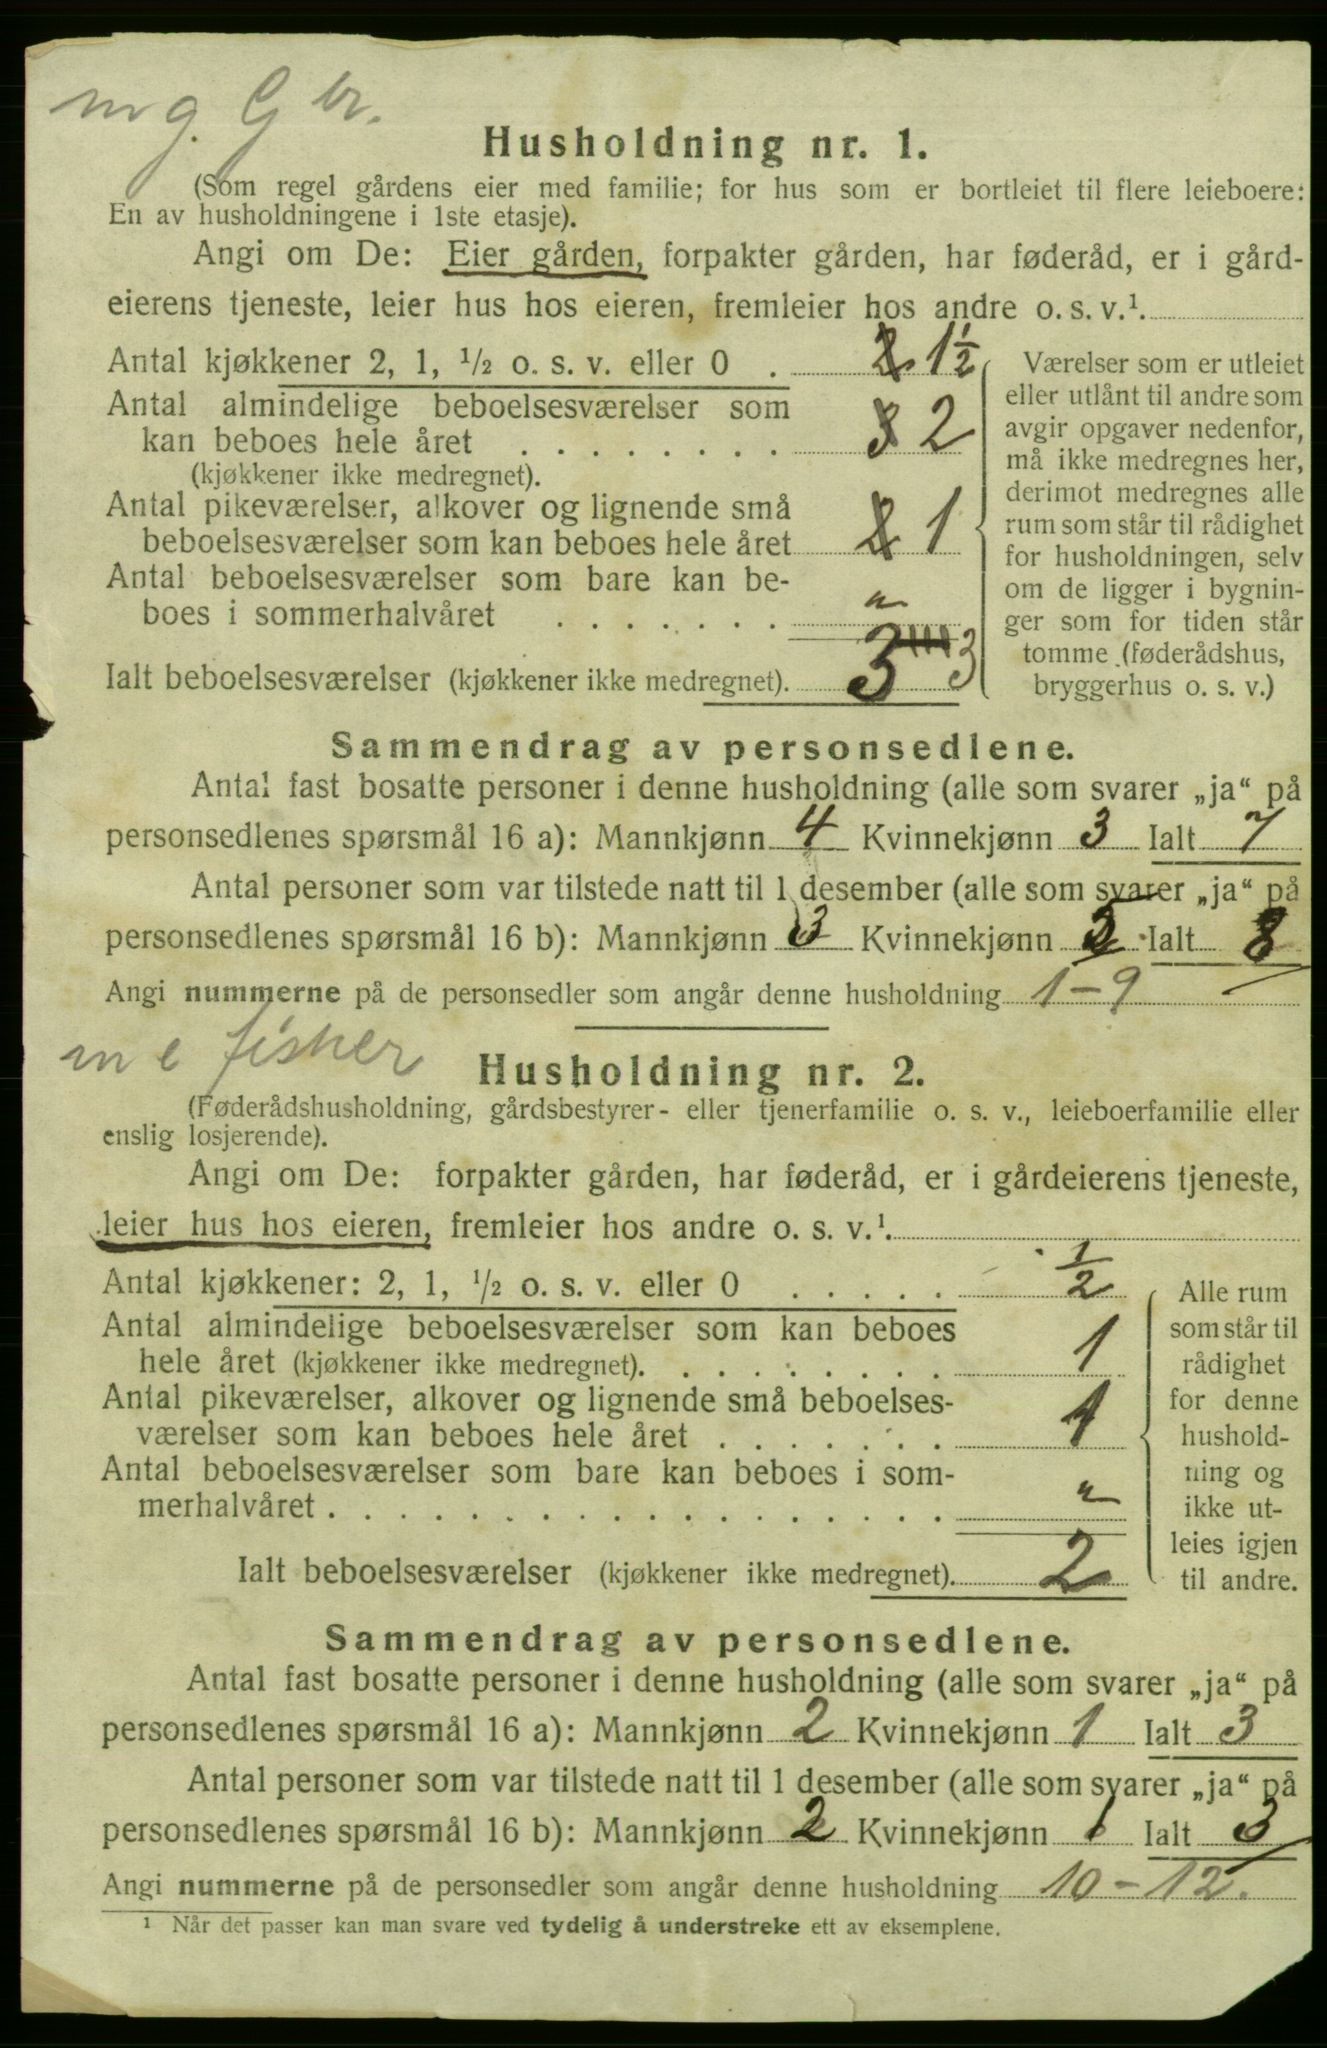 m g. G br.
Husholdning nr. 1.
(Som regel gårdens eier med familie; for hus som er bortleiet til flere leieboere:
En av husholdningene i 1ste etasje).
Angi om De: Eier gården, forpakter gården, har føderåd, er i gård-
eierens tjeneste, leier hus hos eieren, fremleier hos andre o. s. v.¹.
Antal kjøkkener 2, 1, ½ o. s. v. eller 0 . 2 1½
Antal almindelige beboelsesværelser som
kan beboes hele året . . . . . . . . 3 2
(kjøkkener ikke medregnet).
Antal pikeværelser, alkover og lignende små
beboelsesværelser som kan beboes hele året 2 1
Antal beboelsesværelser som bare kan be-
boes i sommerhalvåret . . . . . . . "
Ialt beboelsesværelser (kjøkkener ikke medregnet). 3 3
Værelser som er utleiet
eller utlånt til andre som
avgir opgaver nedenfor,
må ikke medregnes her,
derimot medregnes alle
rum som står til rådighet
for husholdningen, selv
om de ligger i bygnin-
ger som for tiden står
tomme (føderådshus,
bryggerhus o. s. v.)
Sammendrag av personsedlene.
Antal fast bosatte personer i denne husholdning (alle som svarer „ja“ på
personsedlenes spørsmål 16 a): Mannkjønn 4 Kvinnekjønn 3 Ialt 7
Antal personer som var tilstede natt til 1 desember (alle som svarer „ja“ på
personsedlenes spørsmål 16 b): Mannkjønn 3 Kvinnekjønn 5 Ialt 8
Angi nummerne på de personsedler som angår denne husholdning 1 – 9
m e fisker
Husholdning nr. 2.
(Føderådshusholdning, gårdsbestyrer- eller tjenerfamilie o. s. v., leieboerfamilie eller
enslig losjerende).
Angi om De: forpakter gården, har føderåd, er i gårdeierens tjeneste,
leier hus hos eieren, fremleier hos andre o. s. v.¹.
Antal kjøkkener: 2, 1, ½ o. s. v. eller 0 . . . . . ½
Antal almindelige beboelsesværelser som kan beboes
hele året (kjøkkener ikke medregnet). . . . . . . . . 1
Antal pikeværelser, alkover og lignende små beboelses-
værelser som kan beboes hele året . . . . . . . 1
Antal beboelsesværelser som bare kan beboes i som-
merhalvåret . . . . . . . . . . . . . . . . . "
Ialt beboelsesværelser (kjøkkener ikke medregnet). 2
Alle rum
som står til
rådighet
for denne
hushold-
ning og
ikke ut-
leies igjen
til andre.
Sammendrag av personsedlene.
Antal fast bosatte personer i denne husholdning (alle som svarer „ja“ på
personsedlenes spørsmål 16 a): Mannkjønn 2 Kvinnekjønn 1 Ialt 3
Antal personer som var tilstede natt til 1 desember (alle som svarer „ja“ på
personsedlenes spørsmål 16 b): Mannkjønn 2 Kvinnekjønn 1 Ialt 3
Angi nummerne på de personsedler som angår denne husholdning 10 – 12.
¹ Når det passer kan man svare ved tydelig å understreke ett av eksemplene.